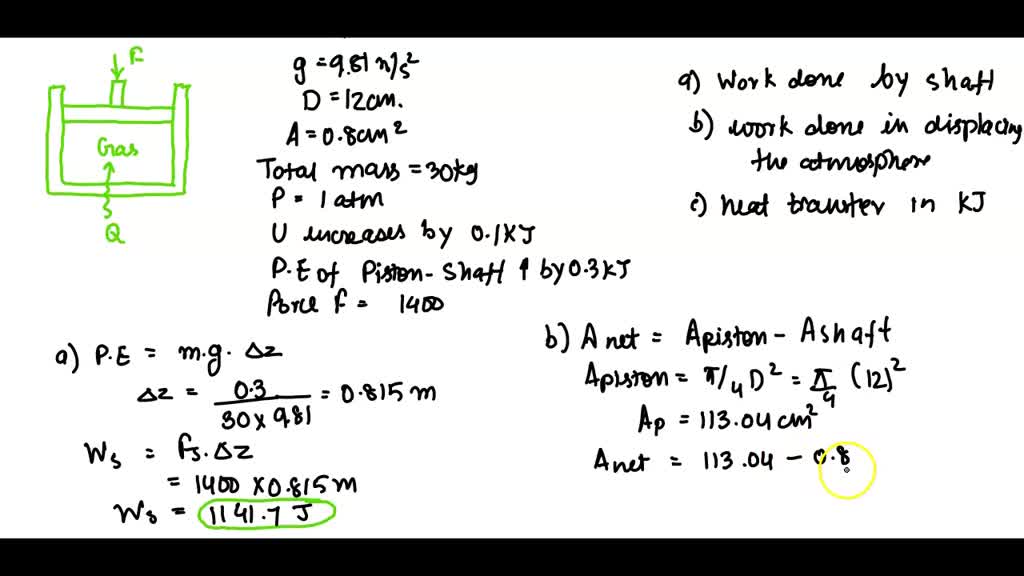 F
Gas
Q
g = 9.81 m/s²
D = 12cm.
A = 0.8cm²
Total mass = 30kg
P = 1 atm
U increases by 0.1KJ
P.E of Piston-shaft ↑ by 0.3KJ
Force F = 1400
a) Work done by shaft
b) work done in displacing
the atmosphere
c) heat transfer in KJ
a) P.E = m.g. Δz
Δz = 0.3 / 30 × 9.81 = 0.815 m
Ws = Fs.Δz
= 1400 × 0.815 m
Ws = 1141.7 J
b) A net = Apiston - Ashaft
Apiston = π/4 D² = π/4 (12)²
Ap = 113.04 cm²
Anet = 113.04 - 0.8